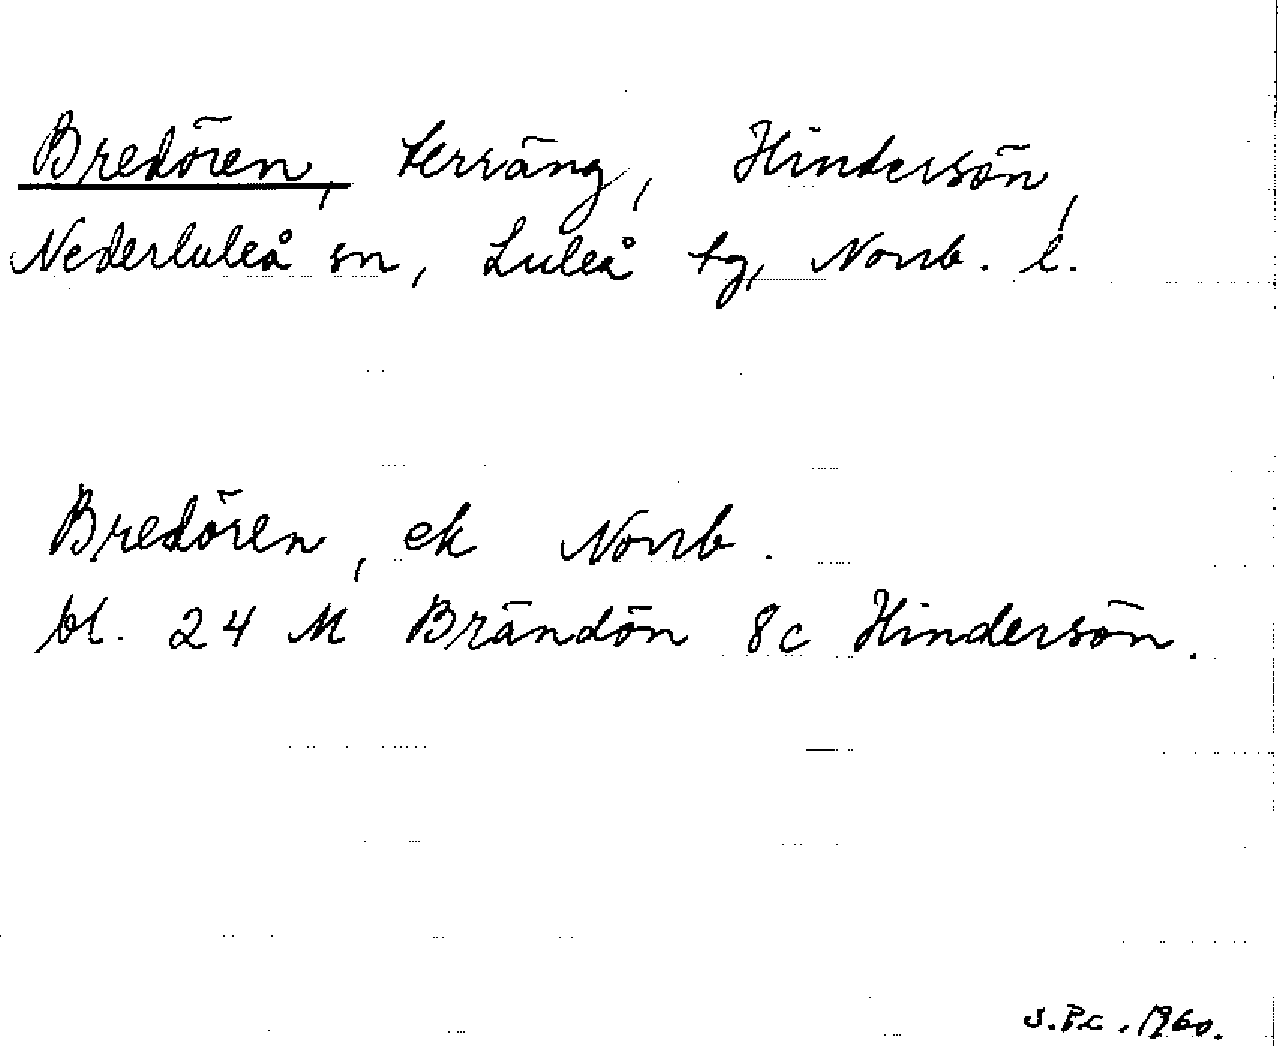 Bredören, terräng, Hindersön,
Nederluleå sn, Luleå tg, Norrb. l.
Bredören, ek Norrb.
bl. 24 M Brändön 8c Hindersön.
1960.